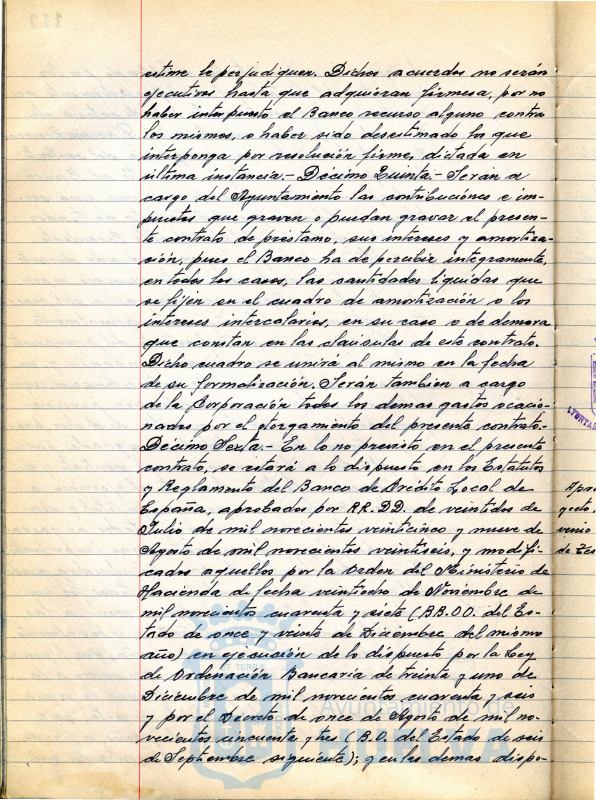 estime le perjudiquen. Dichos acuerdos no serán
ejecutivos hasta que adquieran firmeza, por no
haber interpuesto el Banco recurso alguno contra
los mismos, o haber sido desestimado los que
interponga por resolución firme, dictada en
última instancia.- Décimo Quinta.- Serán a
cargo del Ayuntamiento las contribuciones e im-
puestos que graven o puedan gravar el presen-
te contrato de préstamo, sus intereses y amortiza-
ción, pues el Banco ha de percibir íntegramente,
en todos los casos, las cantidades líquidas que
se fijen en el cuadro de amortización o los
intereses intercalarios, en su caso o de demora
que constan en las cláusulas de este contrato.
Dicho cuadro se unirá al mismo en la fecha
de su formalización. Serán tambien a cargo
de la Corporación todos los demas gastos ocacio-
nados por el otorgamiento del presente contrato.-
Décimo Sexta.- En lo no previsto en el presente
contrato, se estará a lo dispuesto en los Estatutos
y Reglamento del Banco de Crédito Local de
España, aprobados por RR.DD. de veintidos de
Julio de mil novecientos veinticinco y nueve de
Agosto de mil novecientos veintiseis, y modifi-
cados aquellos por la Orden del Ministerio de
Hacienda de fecha veintiocho de Noviembre de
mil novecientos cuarenta y siete (BB.OO. del Es-
tado de once y veinte de Diciembre del mismo
año) en ejecución de lo dispuesto por la Ley
de Ordenación Bancaria de treinta y uno de
Diciembre de mil novecientos cuarenta y seis
y por el Decreto de once de Agosto de mil no-
vecientos cincuenta y tres (B.O. del Estado de seis
de Septiembre siguiente); y en las demas dispo-
Ayuntamiento de
HUELVA